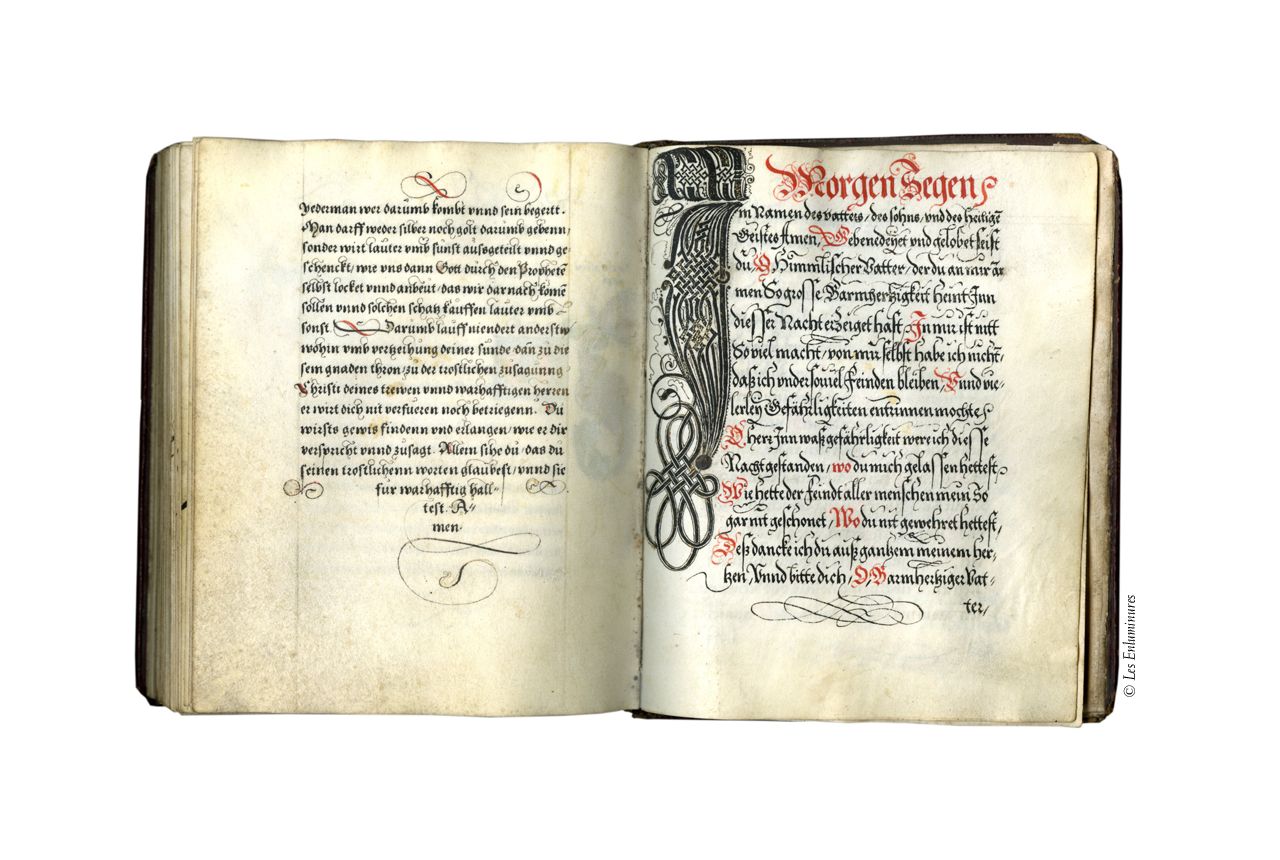 yederman wer darumb kombt vnnd sein begertt.
Man darff weder silber noch golt darumb gebenn,
sonder wirt lauter vmb sunst ausgeteilt vnnd ge
schenckt, wie vns dann Gott durch den Prophetē
selbst locket vnnd anbeut, das wir darnach komē
sollen vnnd solchen schatz kauffen lauter vmb
sonst. Darumb lauff niendert anderstw
wohin vmb vertzeihung deiner sunde, dan zu die
sem gnaden thron, zu der trostlichen zusagunng
Christi deines trewen vnnd warhafftigen herren
er wirt dich nit verfueren noch betriegenn. Du
wirsts gewis findenn vnd erlangen, wie er dir
verspricht vnnd zusagt. Allein sihe du, das du
seinen trostlichenn worten glaubest, vnnd sie
fur warhafftig hall-
test. A-
men.
Morgen Segen
Im Namen des vatters, des sohns, vnd des heiligē
Geistes Amen, Gebenedeyet vnd gelobet seist
du O Himmlischer Vatter, der du an mir ar
men So grosse Barmhertzigkeit heint Inn
diesser Nacht erzeiget hast, In mir ist nitt
So viel macht, von mir selbst habe ich nicht,
daß ich vnder souiel feinden bleiben, Vnnd vie-
lerley Gefährligkeiten entrinnen mochte,
O herr Inn waß gefährligkeit were ich diesse
Nacht gestanden, wo du mich gelassen hettest,
Wie hette der feindt aller menschen mein So
gar nit geschonet, Wo du nit gewehret hettest,
Deß dancke ich dir auß gantzem meinem her-
tzen, Vnnd bitte dich, O, Barmhertziger Vat-
ter,
© Les Enluminures